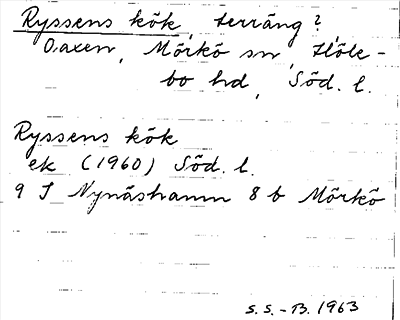 Ryssens kök, terräng?
Oaxen, Mörkö sn, Höle-
bo hd, Söd. l.
Ryssens kök
ek (1960) Söd. l.
9 I Nynäshamn 8 b Mörkö
S.S.-B. 1963